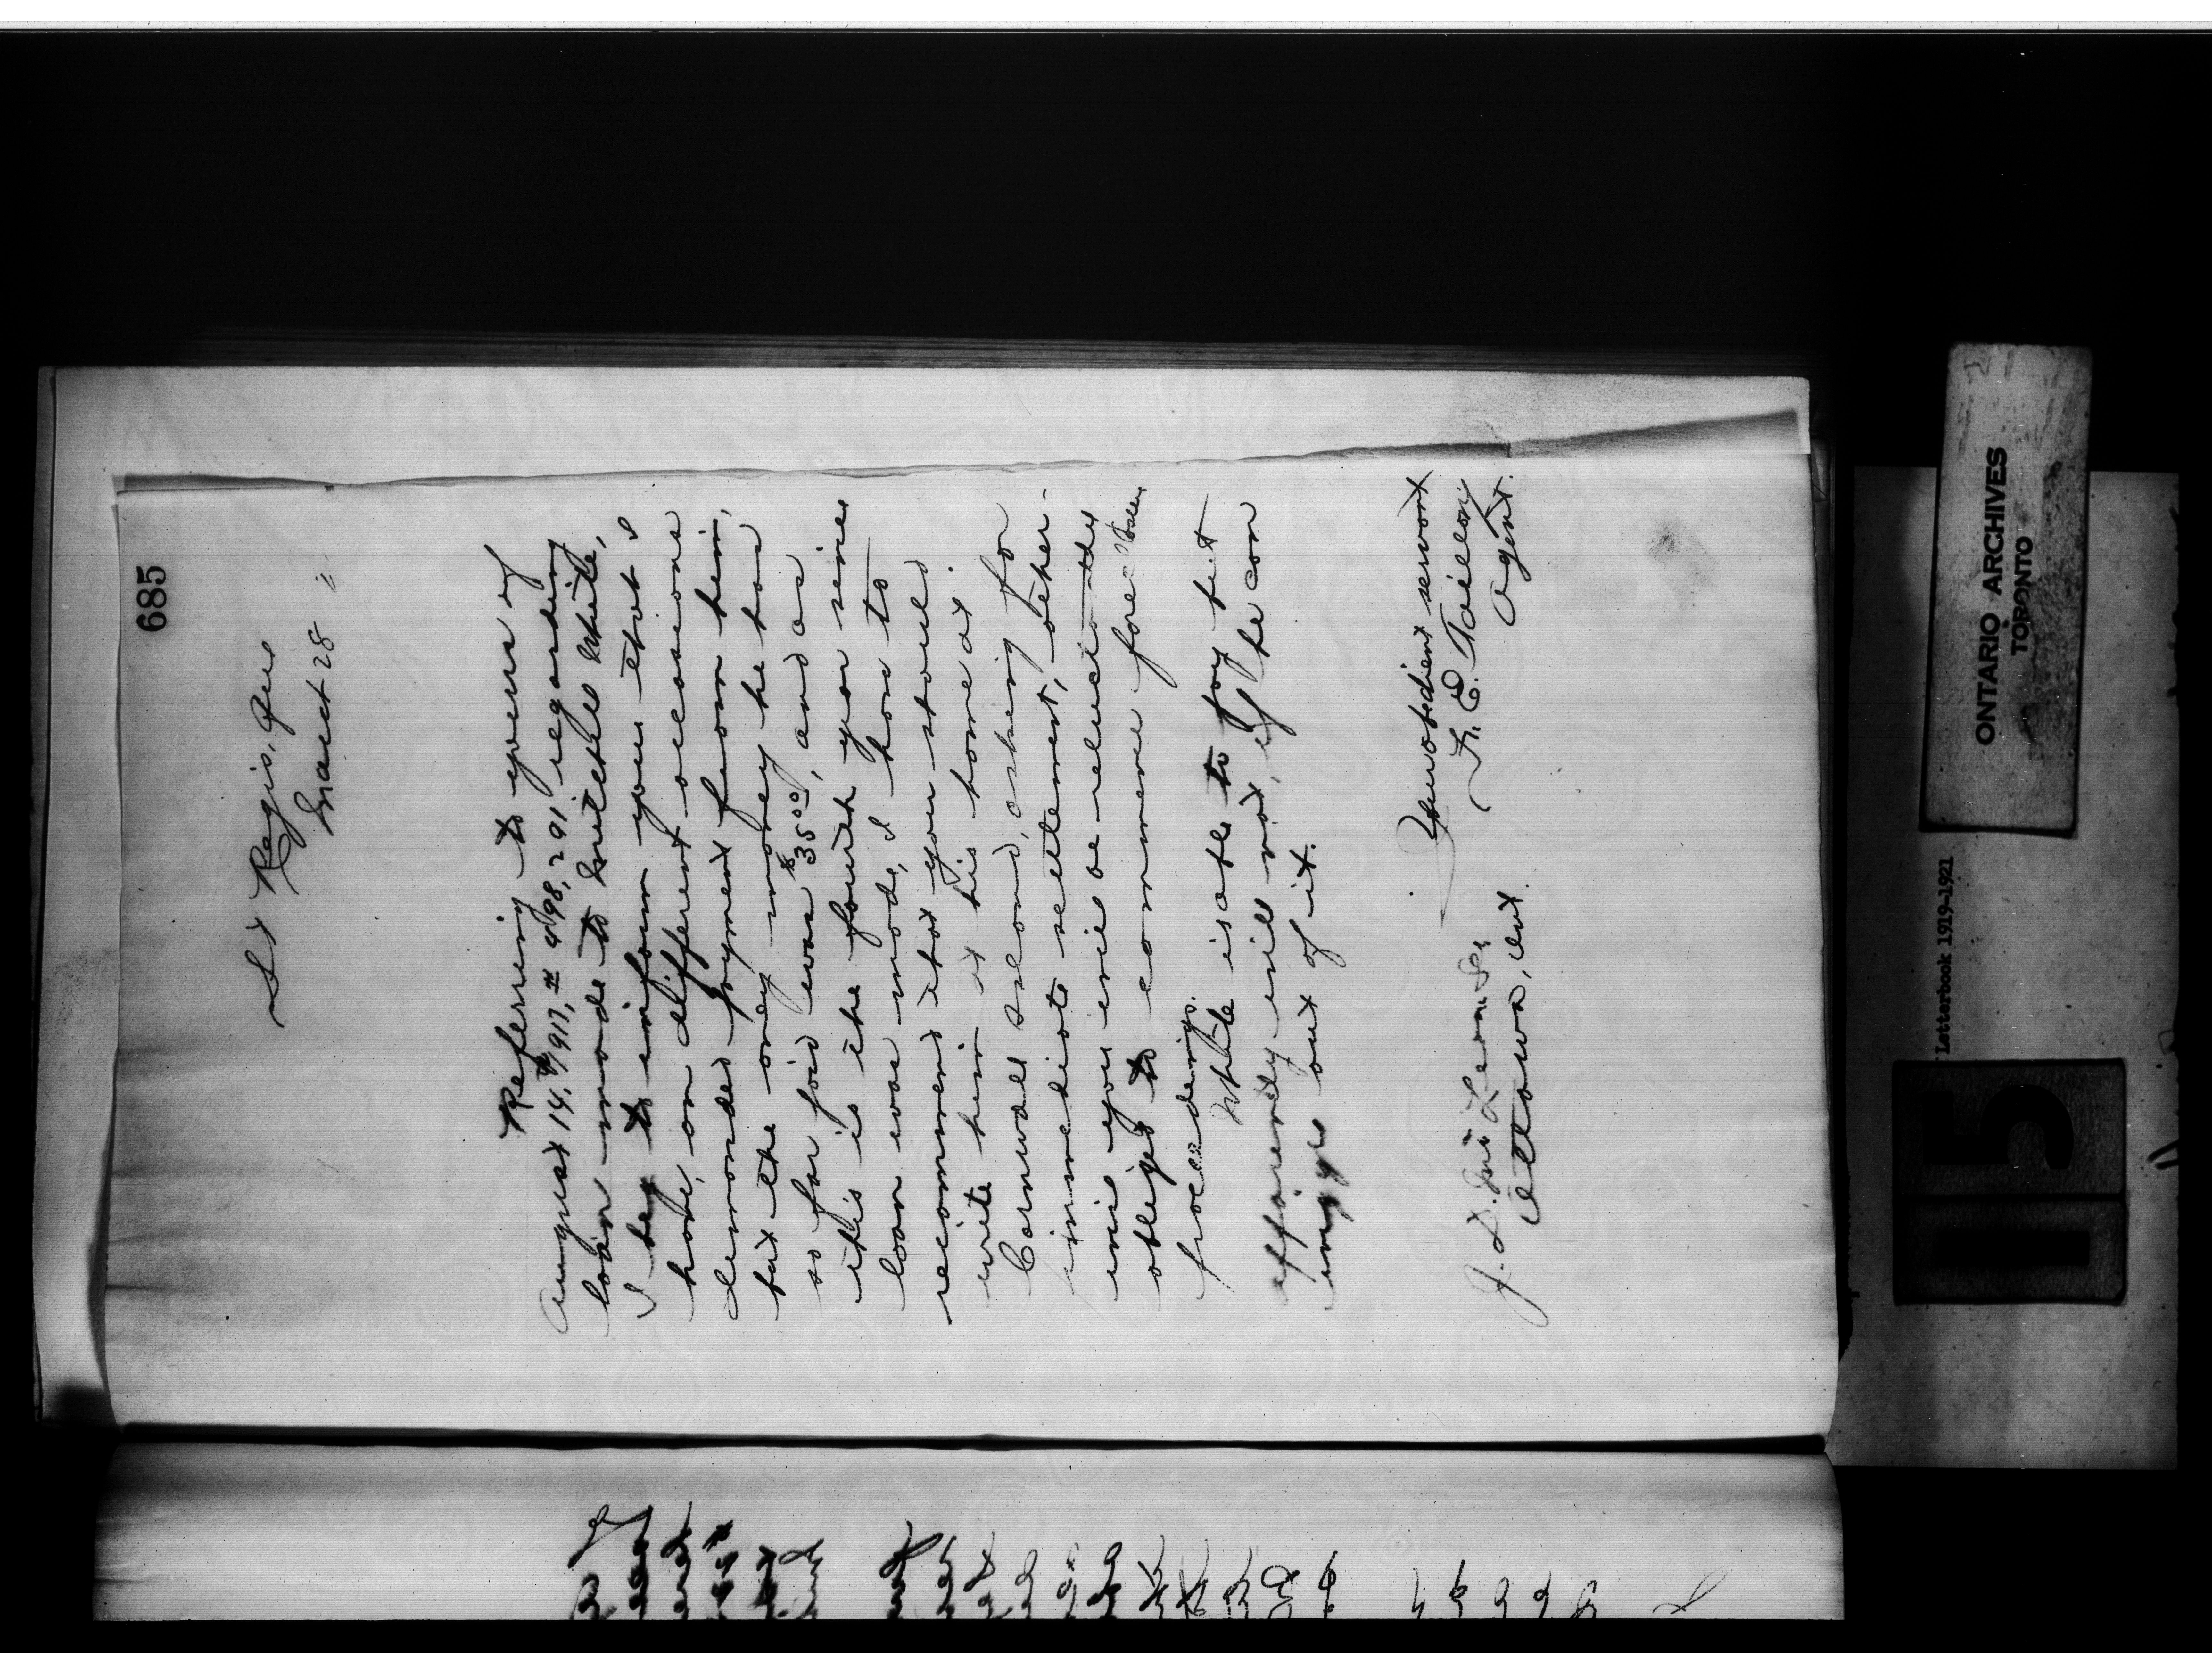 685
St Regis, Que
March 28
Referring to yours of
August 14th/1917, # 498,291 regarding
loan made to Mitchel White,
I beg to inform you that I
have, on different occasions
demanded payment from him,
but the only money he has
so far paid was $35.00, and as
this is the fourth year since
loan was made, I have to
recommend that you should
write him at his home at
Cornwall Island, asking for
immediate settlement, other-
wise you will be reluctantly
obliged to commence
proceedings.
White is able to pay but
apparently will not, if he can
wiggle out of it.
Your obedient servant
F. E. Taillon
Agent.
J. D. McLean Esq
Ottawa, Ont.
ONTARIO ARCHIVES
TORONTO
Letterbook 1919-1921